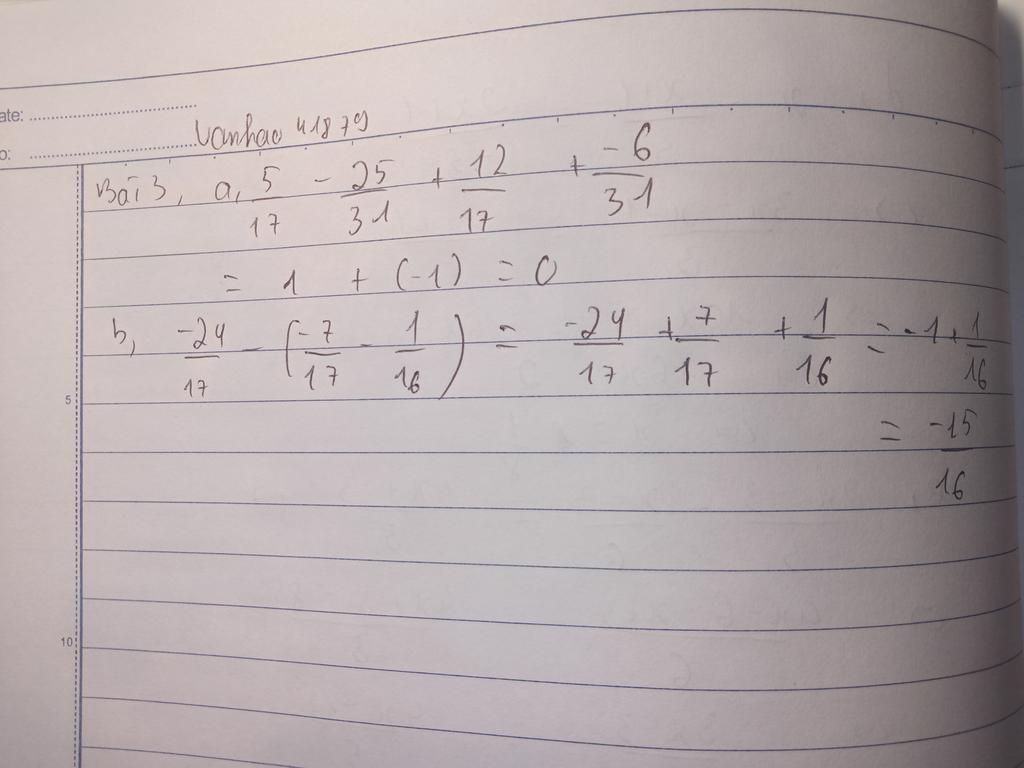 ate: ........................
o: ........................ vanhao 41879
Bài 3, a, 5/17 - 25/31 + 12/17 + -6/31
= 1 + (-1) = 0
b, -24/17 - (-7/17 - 1/16) = -24/17 + 7/17 + 1/16 = -1 + 1/16
= -15/16
5
10